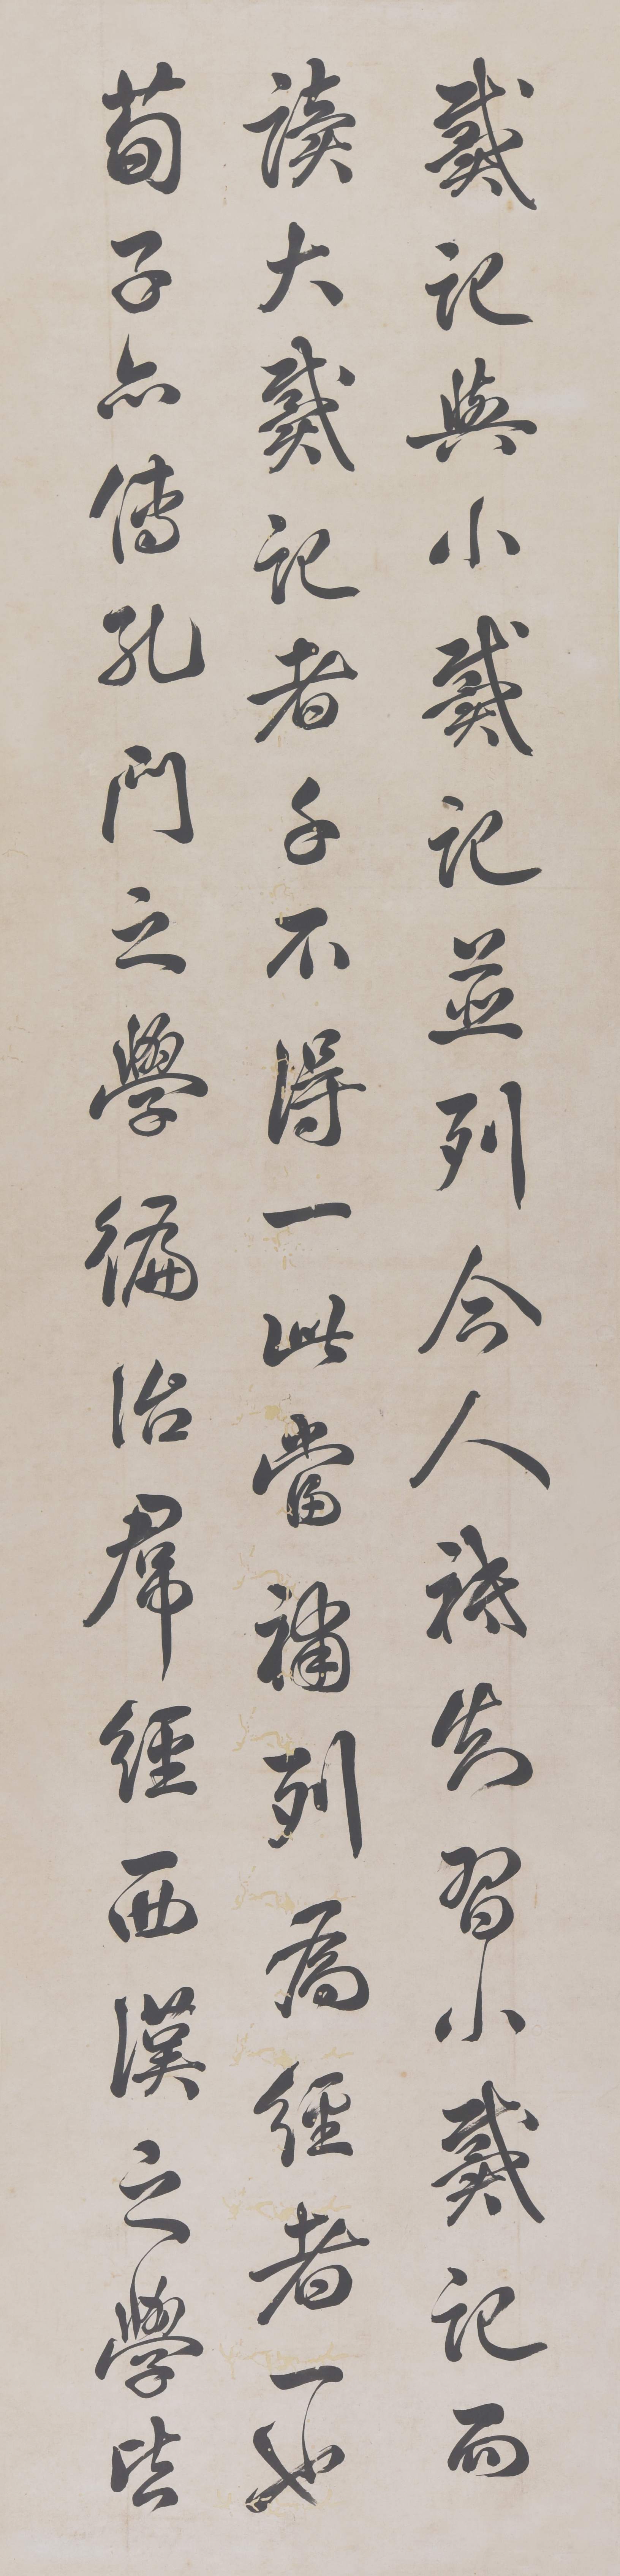 戴記與小戴記並列今人祗知習小戴記而
讀大戴記者千不得一此當補列為經者一也
荀子亦傳孔門之學徧治羣經西漢之學皆